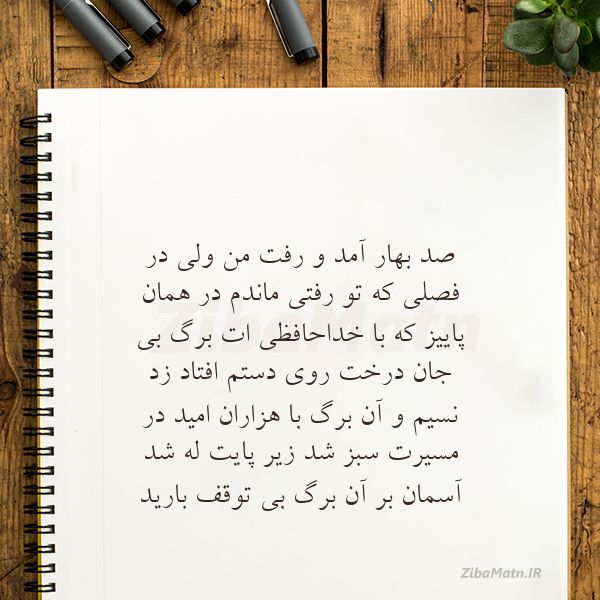 صد بهار آمد و رفت من ولی در
فصلی که تو رفتی ماندم در همان
پاییز که با خداحافظی ات برگ بی
جان درخت روی دستم افتاد زد
نسیم و آن برگ با هزاران امید در
مسیرت سبز شد زیر پایت له شد
آسمان بر آن برگ بی توقف بارید
ZibaMatn
ZibaMatn.IR